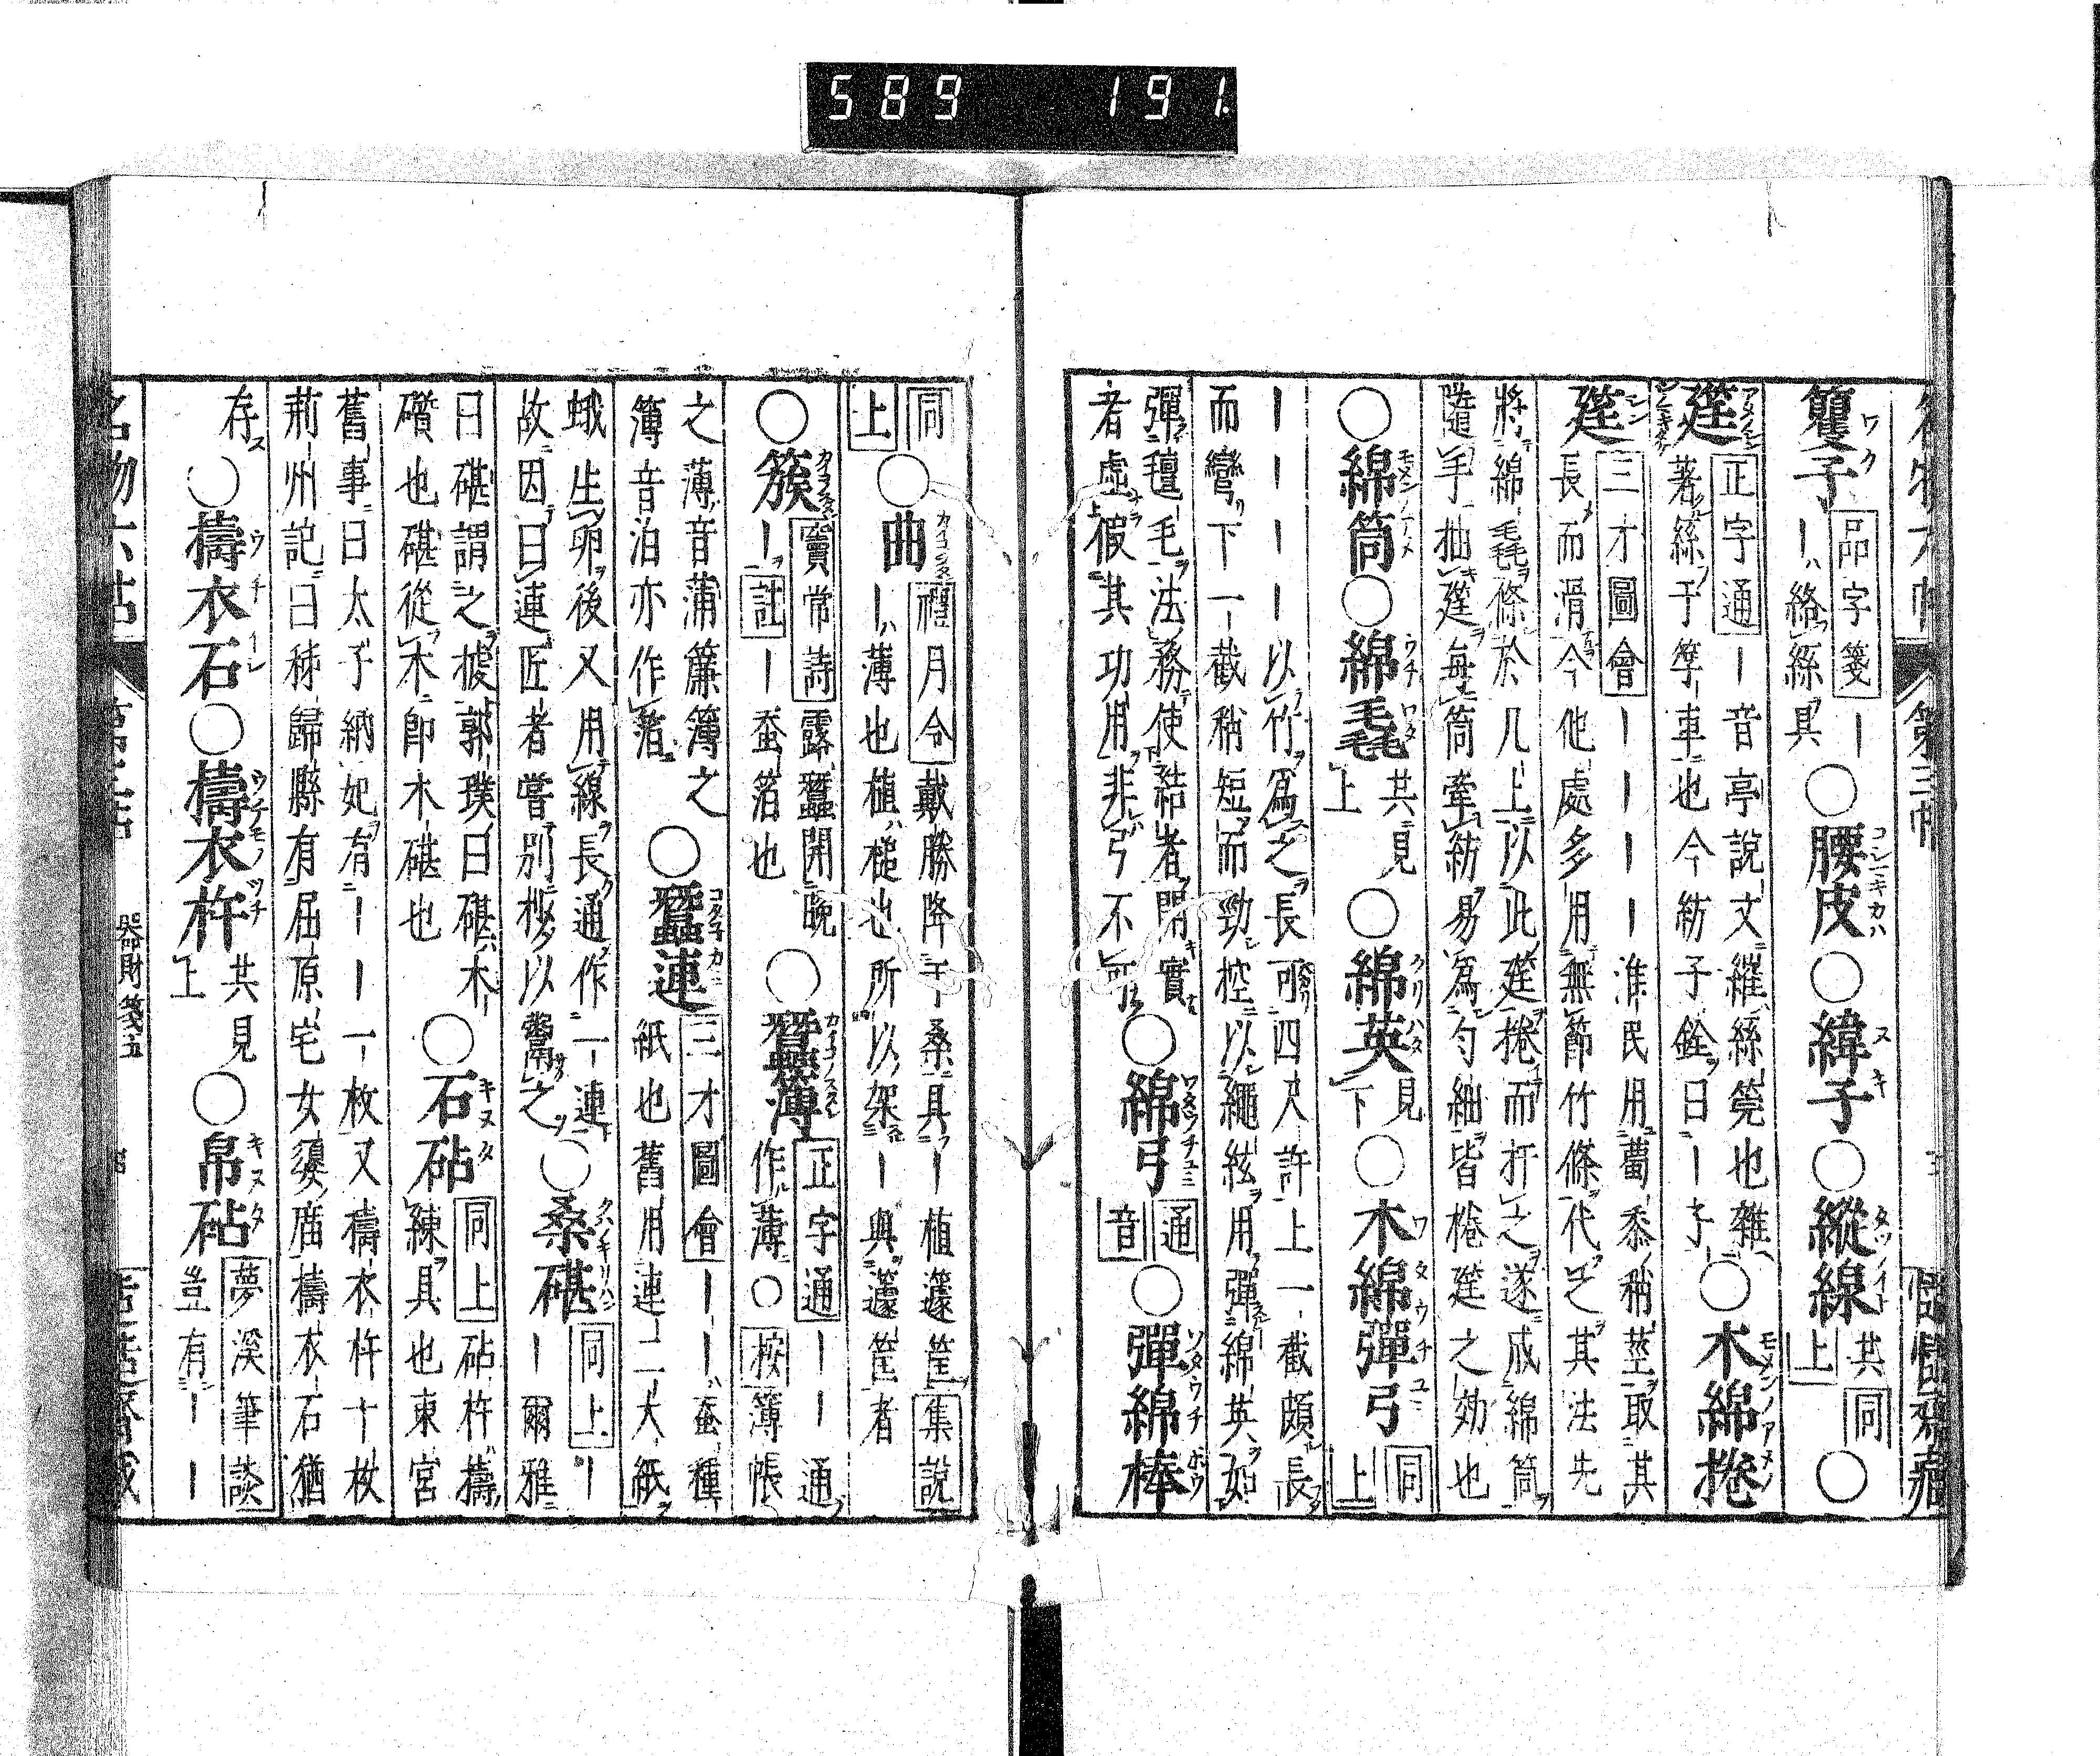 589 191.
籰子 品字箋 ー
ーハ絡絲具 ○腰皮 ○緯子 ○縱線 共同上 ○
筳 正字通 ー音亭說文維絲筦也雜
著絲于筟車也今紡子銓曰ー子 ○木綿捲
筳 三才圖會 ーーーー淮民用蜀黍稍莖取其
長而滑今他處多用無節竹條代之其法先
將綿毳條於几上以此筳捲而扞之遂成綿筒
隨手抽筳每筒牽紡易爲勻細皆捲筳之効也
○綿筒 ○綿毳 共見上 ○綿英 見下 ○木綿彈弓 同上
ーーーー以竹爲之長可四尺許上一截頗長
而彎下一截稍短而勁控以繩絃用彈綿英如
彈氊毛法務使結者開實
者虛假其功用非弓不可 ○綿弓 通音 ○彈綿棒
同上 ○曲 禮月令 戴勝降于桑具ー植籧筐 集說
ーハ薄也植ハ槌也所以架ー與籧筐者
○簇 竇常詩 露蠶開晚
ー 註 ー蚕箔也 ○蠶薄 正字通 ーー通
作薄○ 按 簿帳
之薄音蒲簾簿之
簿音泊亦作箔 ○蠶連 三才圖會 ーーハ蚕種
紙也舊用連二大紙
蛾生卵後又用線長通作一連
故因曰連匠者嘗別抄以鬻之 ○桑碪 同上 ー
ー爾雅
曰碪謂之榩郭璞曰碪木
礩也碪從木卽木碪也 ○石砧 同上 砧杵ハ擣
練具也東宮
舊事曰太子納妃有ーー一枚又擣衣杵十枚
荊州記曰秭歸縣有屈原宅女嬃廟擣衣石猶
存 ○擣衣石 ○擣衣杵 共見上 ○帛砧 夢溪筆談
豈有ーー
器財箋五